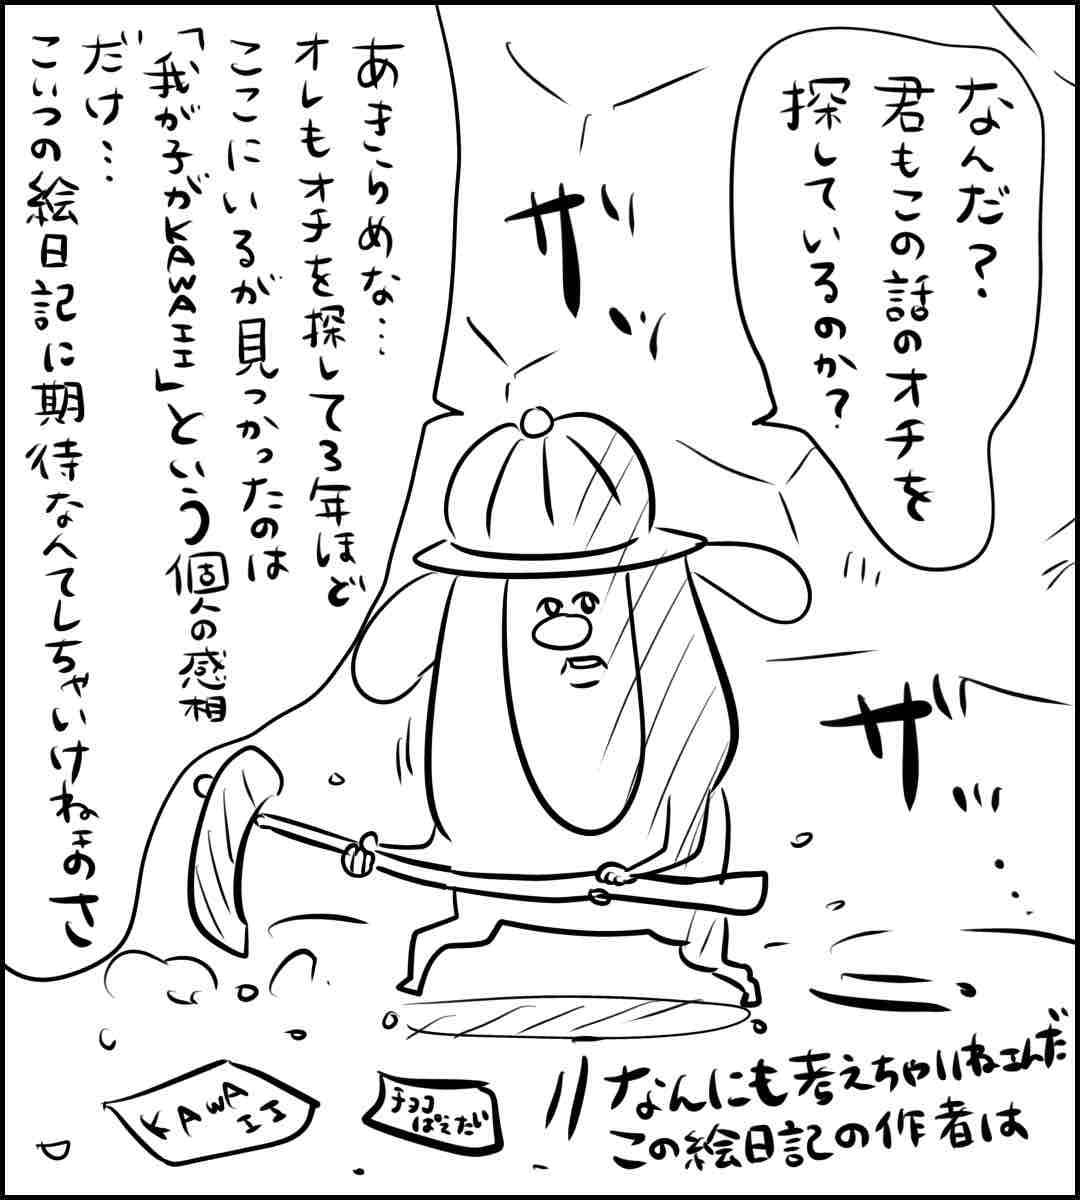 なんだ?
君もこの話のオチを
探しているのか?
あきらめな…
オレもオチを探して3年ほど
ここにいるが見っかったのは
「我が子がKAWAII」という個人の感想
だけ…
こいつの絵日記に期待なんてしちゃいけねェのさ
ザッ
ザッ
なんにも考えちゃいねェんだ
この絵日記の作者は
KAWAII
チョコ
ぱえたい